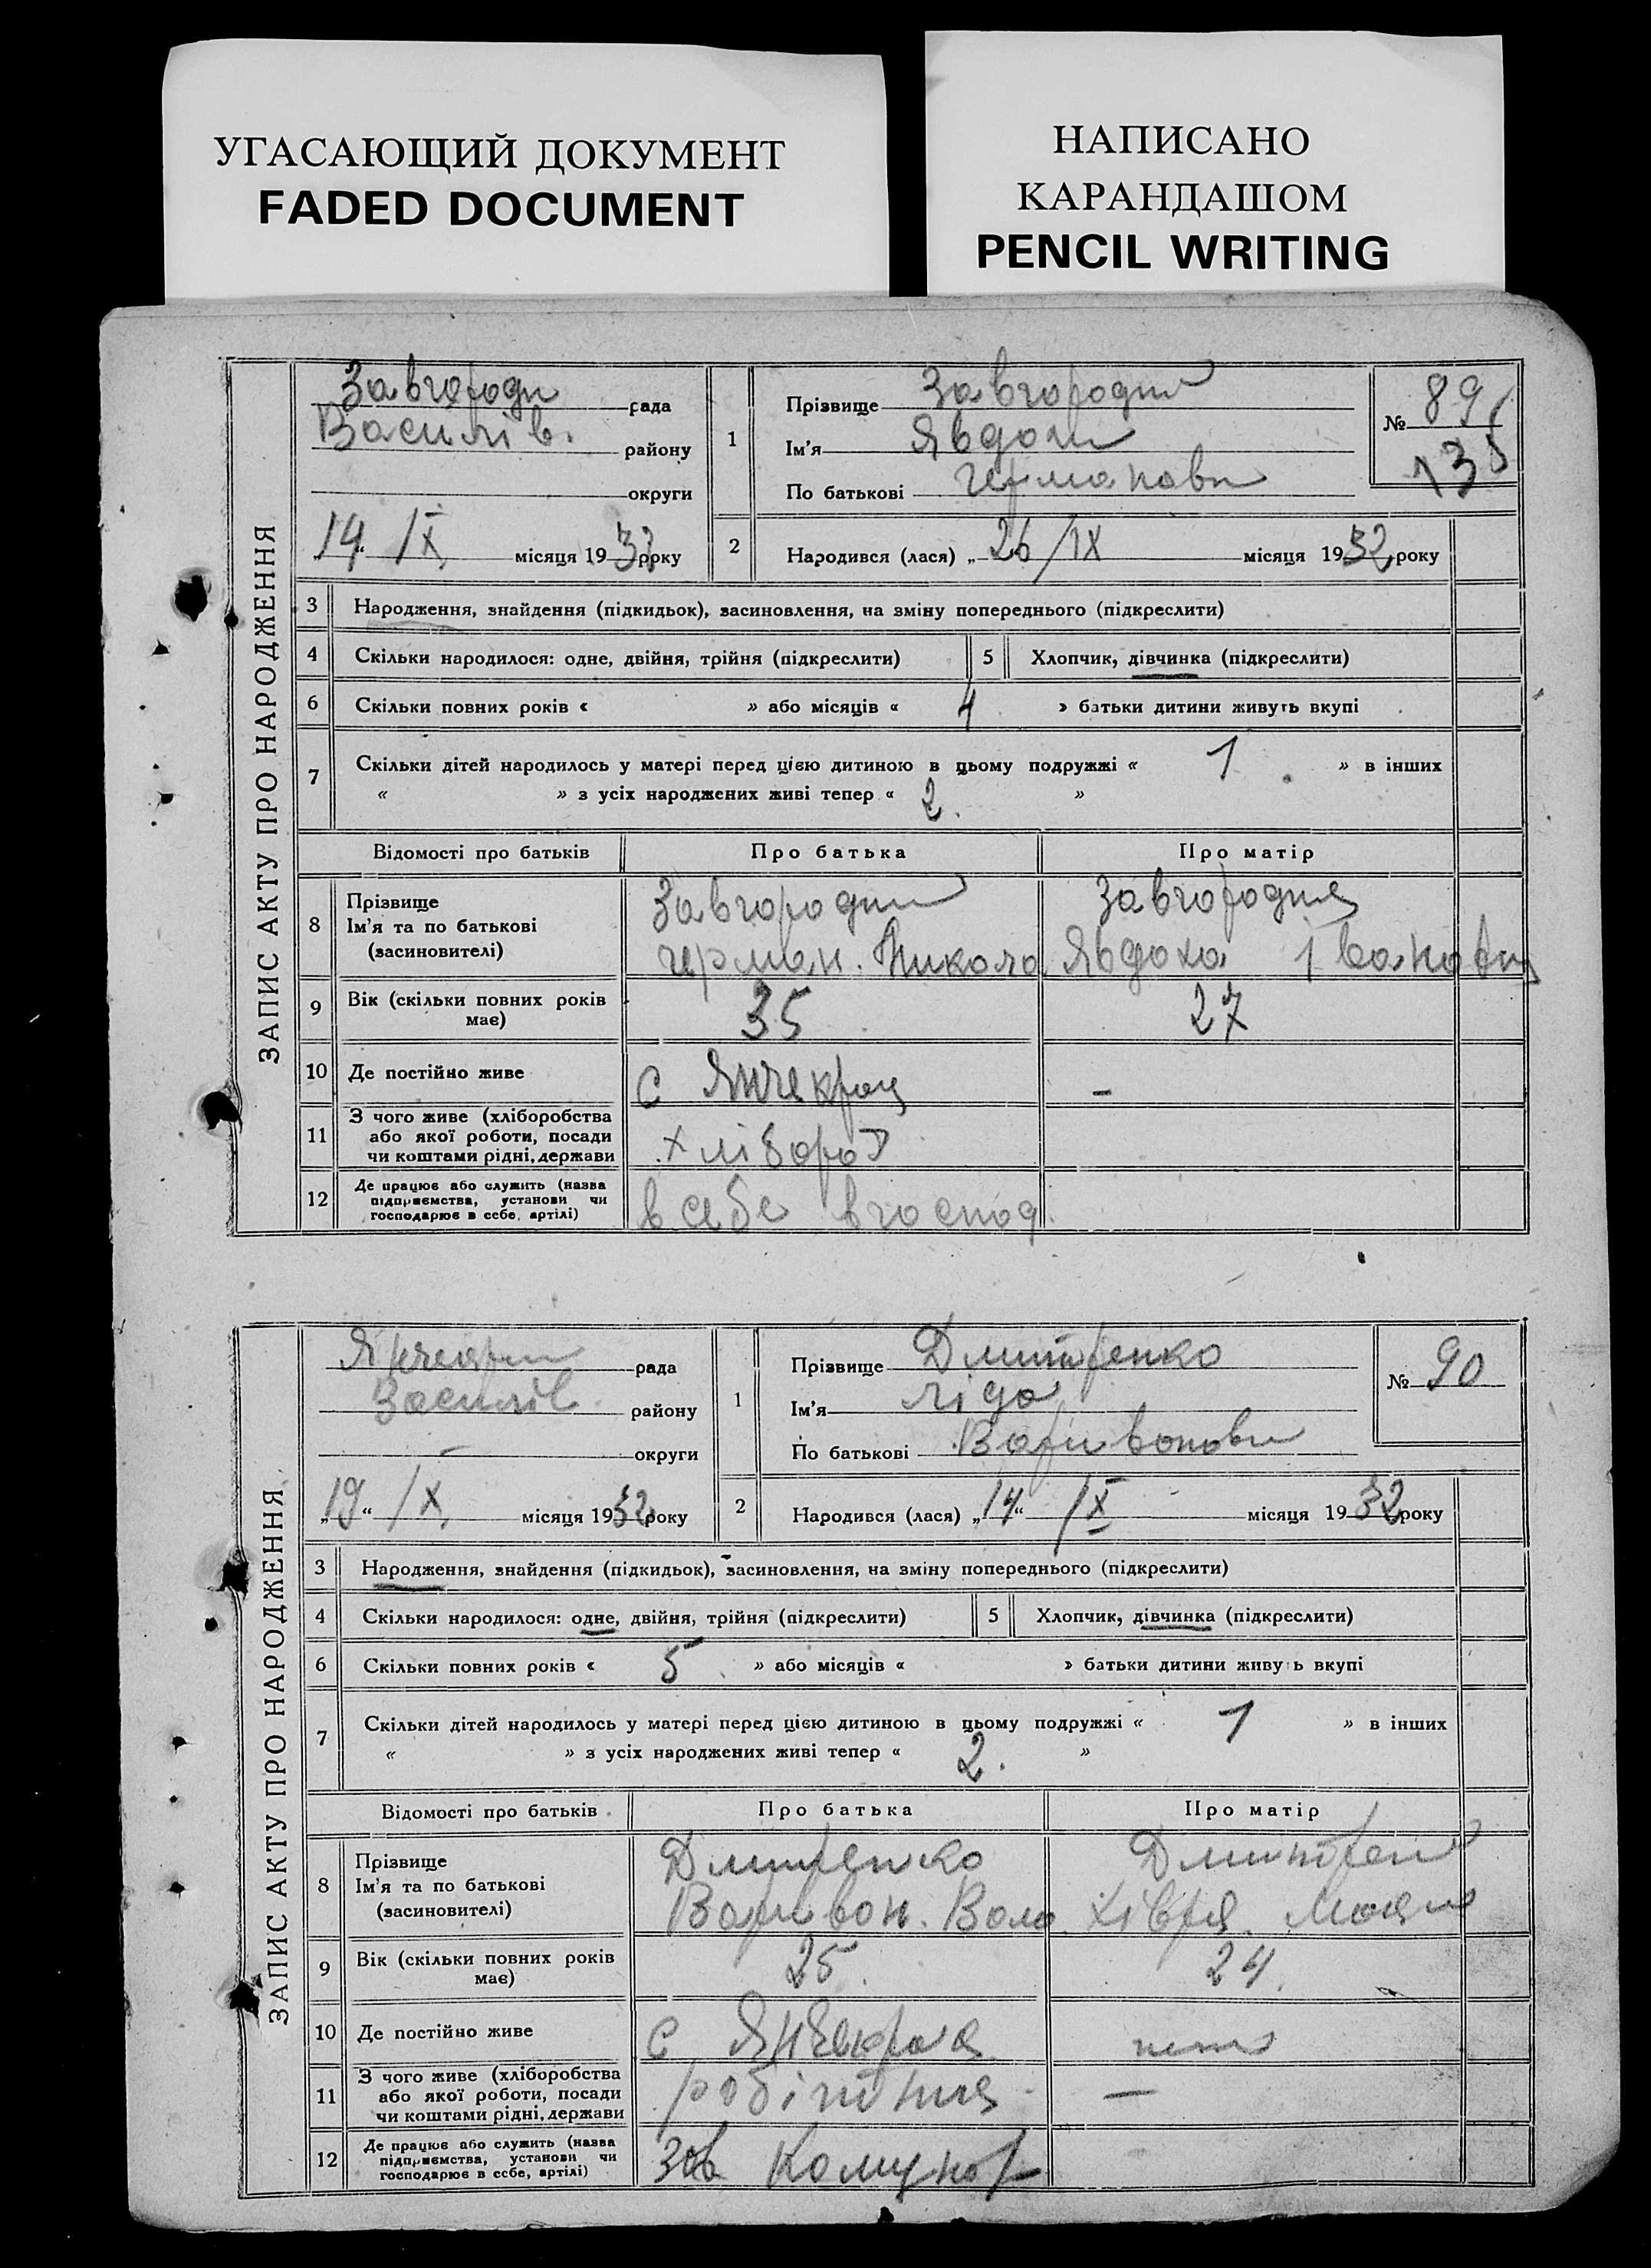 УГАСАЮЩИЙ ДОКУМЕНТ
FADED DOCUMENT
НАПИСАНО
КАРАНДАШОМ
PENCIL WRITING
ЗАПИС АКТУ ПРО НАРОДЖЕННЯ
Завгороди рада
Василів. району
округи
14 " IX місяця 1932 року
1 Прізвище Завгородни
Ім'я Явдоки
По батькові Германовн
№ 89
135
2 Народився (лася) „ 26 /IX місяця 1932 року
3 Народження, знайдення (підкидьок), засиновлення, на зміну попереднього (підкреслити)
4 Скільки народилося: одне, двійня, трійня (підкреслити) 5 Хлопчик, дівчинка (підкреслити)
6 Скільки повних років « » або місяців « 4 » батьки дитини живуть вкупі
7 Скільки дітей народилось у матері перед цією дитиною в цьому подружжі « 1 » в інших
« » з усіх народжених живі тепер « 2. »
Відомості про батьків Про батька Про матір
8 Прізвище
Ім'я та по батькові
(засновителі)
Завгородни Завгородня
Герман. Никола Явдоха Івановн
9 Вік (скільки повних років
має) 35 27
10 Де постійно живе с Янчекрац -
11 З чого живе (хліборобства
або якої роботи, посади
чи коштами рідні, держави
хлібороб
12 Де працює або служить (назва
підприємства, установи чи
господарює в себе, артілі)
в себе в господ.
ЗАПИС АКТУ ПРО НАРОДЖЕННЯ
рада
Василів. району
– округи
„ 19 " IX місяця 1932 року
1 Прізвище Дмитренко
Ім'я Ліда
По батькові Варивоновн
№ 90
2 Народився (лася) „ 14 " IX місяця 1932 року
3 Народження, знайдення (підкидьок), засиновлення, на зміну попереднього (підкреслити)
4 Скільки народилося: одне, двійня, трійня (підкреслити) 5 Хлопчик, дівчинка (підкреслити)
6 Скільки повних років « 5 » або місяців « » батьки дитини живуть вкупі
7 Скільки дітей народилось у матері перед цією дитиною в цьому подружжі « 1 » в інших
« » з усіх народжених живі тепер « 2. »
Відомості про батьків Про батька Про матір
8 Прізвище
Ім'я та по батькові
(засиновителі)
Дмитренко Дмитрен
Варивон. Воло. Хівря
9 Вік (скільки повних років
має) 25. 24.
10 Де постійно живе с Янчекрак
11 З чого живе (хліборобства
або якої роботи, посади
чи коштами рідні, держави
робітник –
12 Де працює або служить (назва
підприємства, установи чи
господарює в себе, артілі)
Зав Комунар